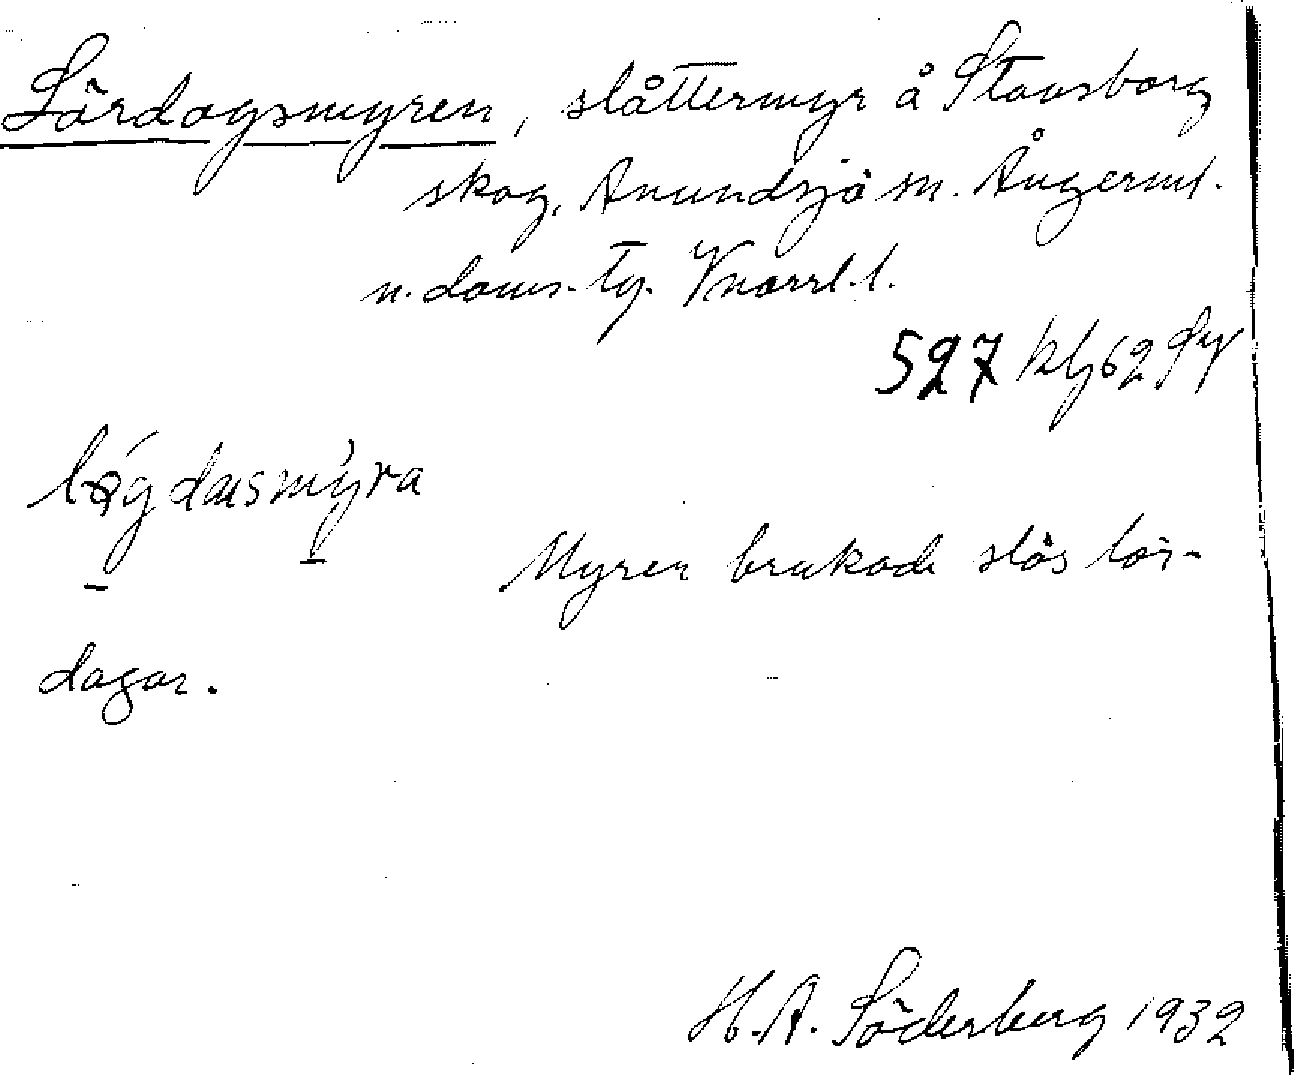 Lördagsmyren, slåttermyr å Stavsborg
skog, Anundsjö sn. Ångerml.
n. doms. tg. Vnorrl. l.
527
lø̀gdasmýra
Myren brukade slås lör-
dagar.
H. A. Söderberg 1932